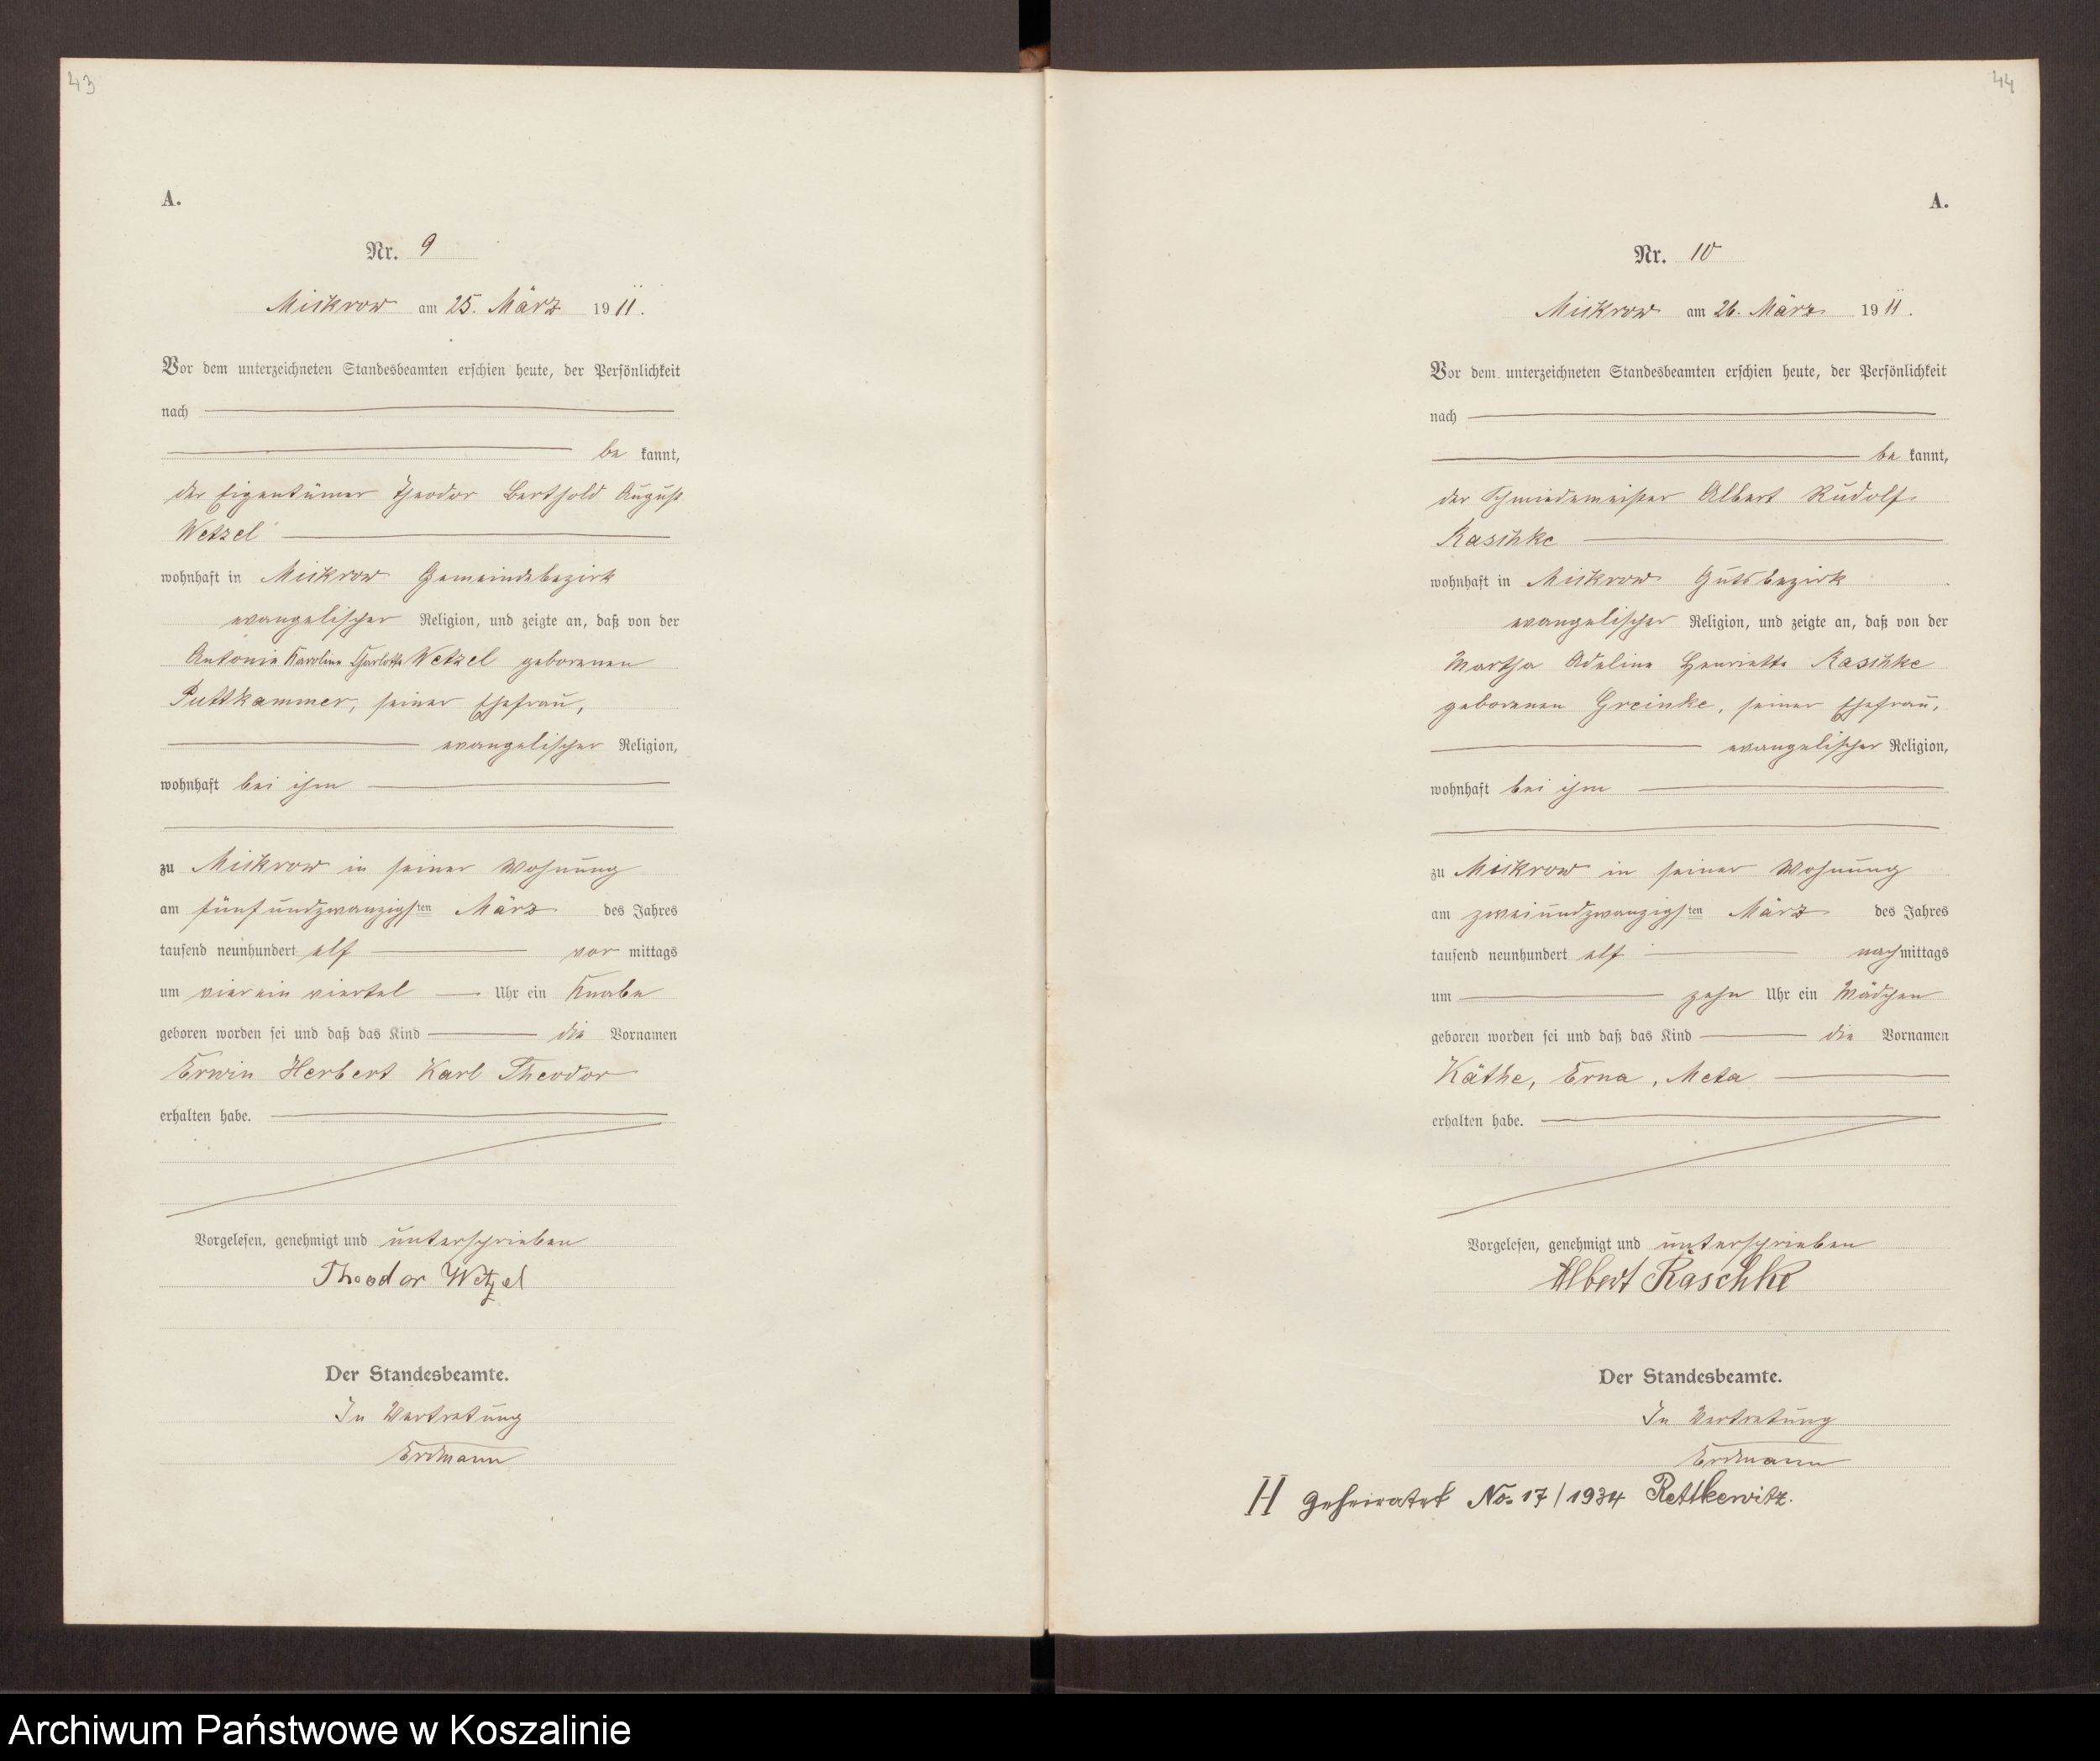 43
A.
Nr. 9
Mickrow am 25. März 1911.
Vor dem unterzeichneten Standesbeamten erschien heute, der Persönlichkeit
nach
be kannt,
der Eigentümer Theodor Berthold August
Wetzel
wohnhaft in Mickrow Gemeindebezirk
evangelischer Religion, und zeigte an, daß von der
Antonie Karoline Charlotte Wetzel geborenen
Puttkammer, seiner Ehefrau,
evangelischer Religion,
wohnhaft bei ihm
zu Mickrow in seiner Wohnung
am fünfundzwanzigsten März des Jahres
tausend neunhundert elf vor mittags
um vier ein viertel Uhr ein Knabe
geboren worden sei und daß das Kind die Vornamen
Erwin Herbert Karl Theodor
erhalten habe.
Vorgelesen, genehmigt und unterschrieben
Theodor Wetzel
Der Standesbeamte.
In Vertretung
Erdmann
44
A.
Nr. 10
Mickrow am 26. März 1911.
Vor dem unterzeichneten Standesbeamten erschien heute, der Persönlichkeit
nach
be kannt,
der Schmiedemeister Albert Rudolf
Raschke
wohnhaft in Mickrow Gutsbezirk
evangelischer Religion, und zeigte an, daß von der
Martha Adeline Henriette Raschke
geborenen Greinke, seiner Ehefrau,
evangelischer Religion,
wohnhaft bei ihm
zu Mickrow in seiner Wohnung
am zweiundzwanzigsten März des Jahres
tausend neunhundert elf nachmittags
um zehn Uhr ein Mädchen
geboren worden sei und daß das Kind die Vornamen
Käthe, Erna, Meta
erhalten habe.
Vorgelesen, genehmigt und unterschrieben
Albert Raschke
Der Standesbeamte.
In Vertretung
Erdmann
H geheiratet No. 17/1934 Rettkewitz.
Archiwum Państwowe w Koszalinie